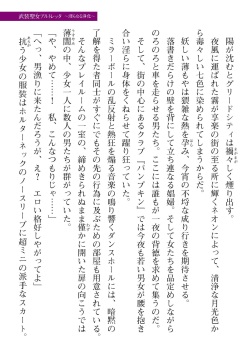 武装聖女ブリトレッタ
陽が沈むとグリードシティは獨々しく燻り出す。
夜風に運ばれた霧が享楽の街の至る所に輝くネオンによって、清浄な月光色か
ら毒々しい七色に染められてしまうからだ。
妖しい薄もやは猥雑な熱を孕み、今宵の不埒な成り行きを期待させる。
落書きだらけの壁を背にして立ち連なる娼婦、そして女たちを品定めしながら
のろのろと車を走らせる男たち。ここには誰もが一夜の背徳を求めて集うのだ。
そして、街の中心にあるクラブ『パンデキン』では今夜も若い男女が腰を抱き
合い淫らに身体をくねらせて踊り狂っていた。
ミラーボールの乱反射と熱狂を煽る音楽の鳴り響くダンスホールには、暗黙の
了解を得た者同士がすぐにでもその先の行為に及ぶための部屋も用意されている。
そんなプレイルームの一室の、締めきられぬまま僅かに開いた扉の向こうでは
薄闇の中、少女一人に数人の男たちが群がっていた。
「や、やめて……！　私、こんなつもりじゃ……！」
「へっ、男漁りに来たんだろうが、え？　エロい格好しやがってよ」
抗う少女の服装はホルターネックのノースリーブに超ミニの派手なスカート。